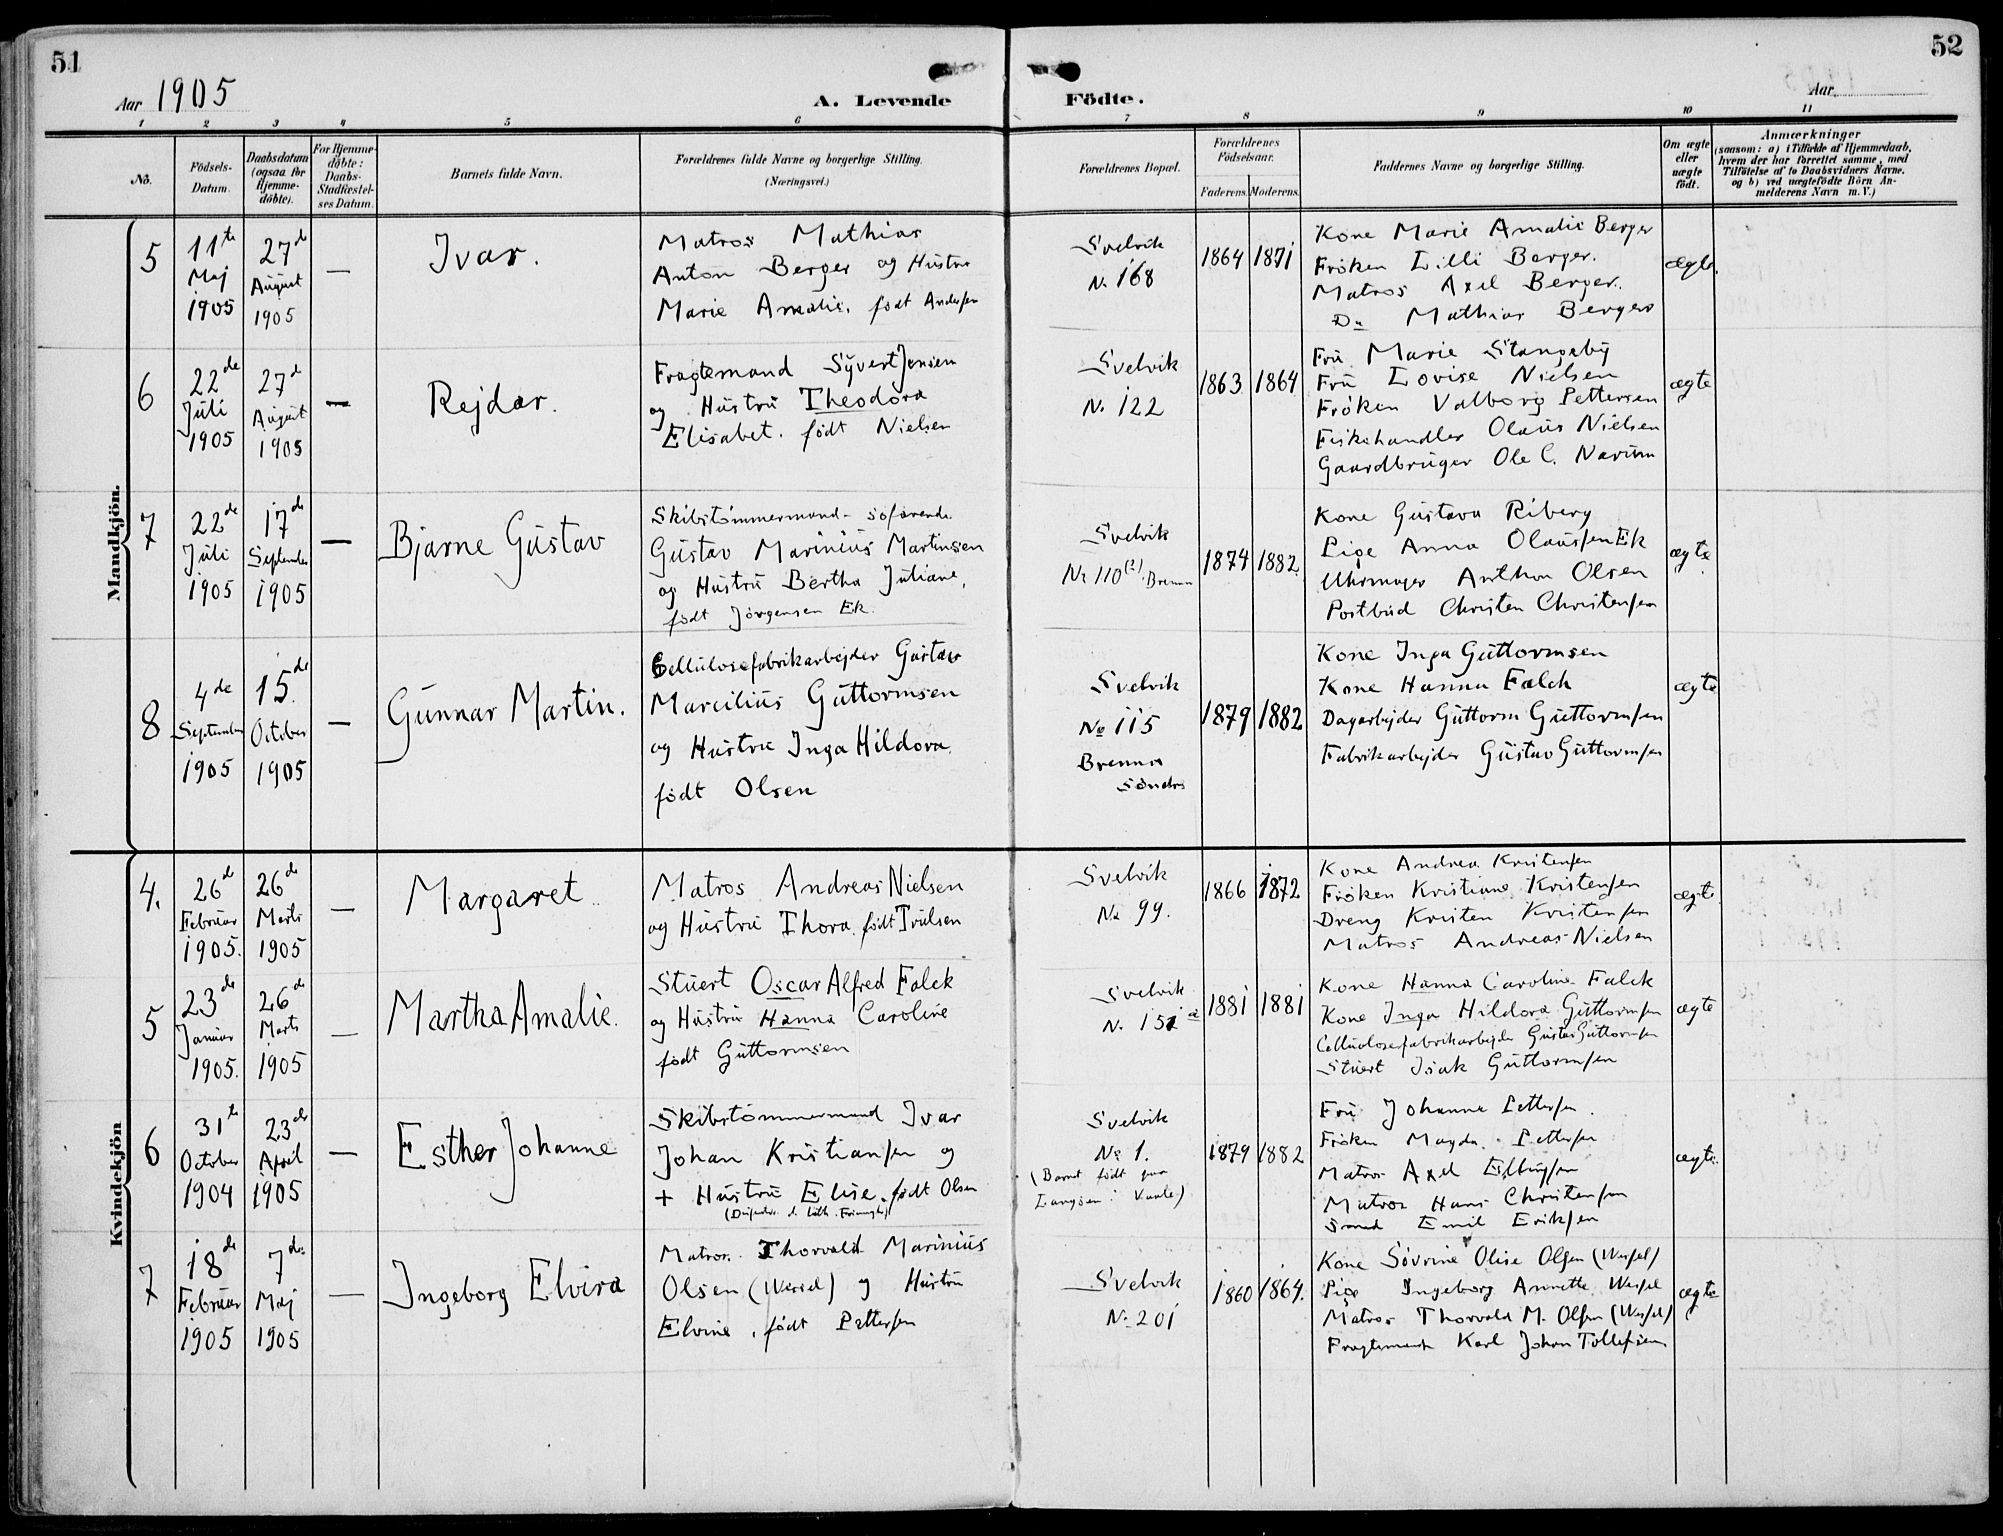 51
52
Aar 1905
A. Levende Födte.
Aar
1 2 3 4 5 6 7 8 9 10 11
No.
Födsels-Datum.
Daabsdatum (ogsaa for Hjemme-döbte).
For Hjemme-döbte: Daabs-Stadfæstel-ses Datum.
Barnets fulde Navn.
Forældrenes fulde Navne og borgerlige Stilling.
(Næringsvei.)
Forældrenes Bopæl.
Forældrenes Födselsaar.
Faderens. Moderens.
Faddernes Navne og borgerlige Stilling.
Om ægte eller uægte födt.
Anmærkninger
(saasom: a) i Tilfælde af Hjemmedaab,
hvem der har forrettet samme, med
Tilföielse af to Daabsvidners Navne.
og b) ved uægtefödte Börn An-
melderens Navn m. V.)
Mandkjön.
5
11te Maj 1905
27de August 1905
—
Ivar.
Matros Mathias
Anton Berger og Hustru
Marie Amalie. født Andersen
Svelvik
No 168
1864 1871
Kone Marie Amalie Berger
Frøken Lilli Berger.
Matros Axel Berger.
Do Mathias Berger
ægte.
6
22de Juli 1905
27de August 1905
—
Rejdar.
Fragtemand Syvert Jensen
og Hustru Theodora
Elisabet. født Nielsen
Svelvik
No 122
1863 1864
Fru Marie Stangeby
Fru Lovise Nielsen
Frøken Valborg Pettersen
Fiskehandler Olaus Nielsen
Gaardbruger Ole C. Narum
ægte
7
22de Juli 1905
17de September 1905
—
Bjarne Gustav
Skibstømmermand - søfarende.
Gustav Marinius Martinsen
og Hustru Bertha Juliane,
født Jørgensen Ek.
Svelvik
No 110(2). Brenna
1874 1882
Kone Gustava Riberg
Pige Anna Olaussen Ek
Uhrmager Anthon Olsen
Postbud Christen Christensen
ægte.
8
4de September 1905
15de October 1905
—
Gunnar Martin.
Cellulosefabrikarbejder Gustav
Marcilius Guttormsen
og Hustru Inga Hildora.
født Olsen
Svelvik
No 115
Brenna
Søndre
1879 1882
Kone Inga Guttormsen
Kone Hanna Falck
Dagarbejder Guttorm Guttormsen
Fabrikarbejder Gustav Guttormsen
ægte
Kvindekjön
4.
26de Februar 1905.
26de Marts 1905
—
Margaret
Matros Andreas Nielsen
og Hustru Thora, født Trulsen
Svelvik
No 99.
1866 1872
Kone Andrea Kristensen
Frøken Kristiane Kristensen
Dreng Kristen Kristensen
Matros Andreas Nielsen
ægte.
5
23de Januar 1905.
26de Marts 1905
—
Martha Amalie.
Stuert Oscar Alfred Falck
og Hustru Hanna Caroline
født Guttormsen
Svelvik
No 151 a
1881 1881
Kone Hanna Caroline Falck
Kone Inga Hildora Guttormsen
Cellulosefabrikarbejder Gustav Guttormsen
Stuert Isak Guttormsen
ægte
6
31te October 1904
23de April 1905
—
Esther Johanne
Skibstømmermand Ivar
Johan Kristiansen og
+ Hustru Elise, født Olsen
Svelvik
No 1.
(Barnet født paa
Langøen i Vaale)
1879 1882
Fru Johanne Pettersen.
Frøken Magda Pettersen
Matros Axel Ellingsen
Matros Hans Christensen
Smed Emil Eriksen
ægte.
7
18de Februar 1905
7de Maj 1905
—
Ingeborg Elvira
Matros. Thorvald Marinius
Olsen (Wessel) og Hustru
Elvine, født Pettersen
Svelvik
No 201
1860 1864.
Kone Søvrine Olise Olsen (Wessel)
Pige Ingeborg Annette Wessel
Matros Thorvald M. Olsen (Wessel)
Fragtemand Karl Johan Tollefsen
ægte